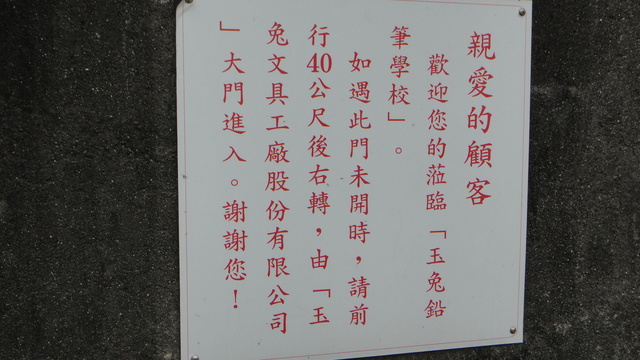 親愛的顧客
歡迎您的蒞臨「玉兔鉛
筆學校」。
如遇此門未開時，請前
行40公尺後右轉，由「玉
兔文具工廠股份有限公司
」大門進入。謝謝您！